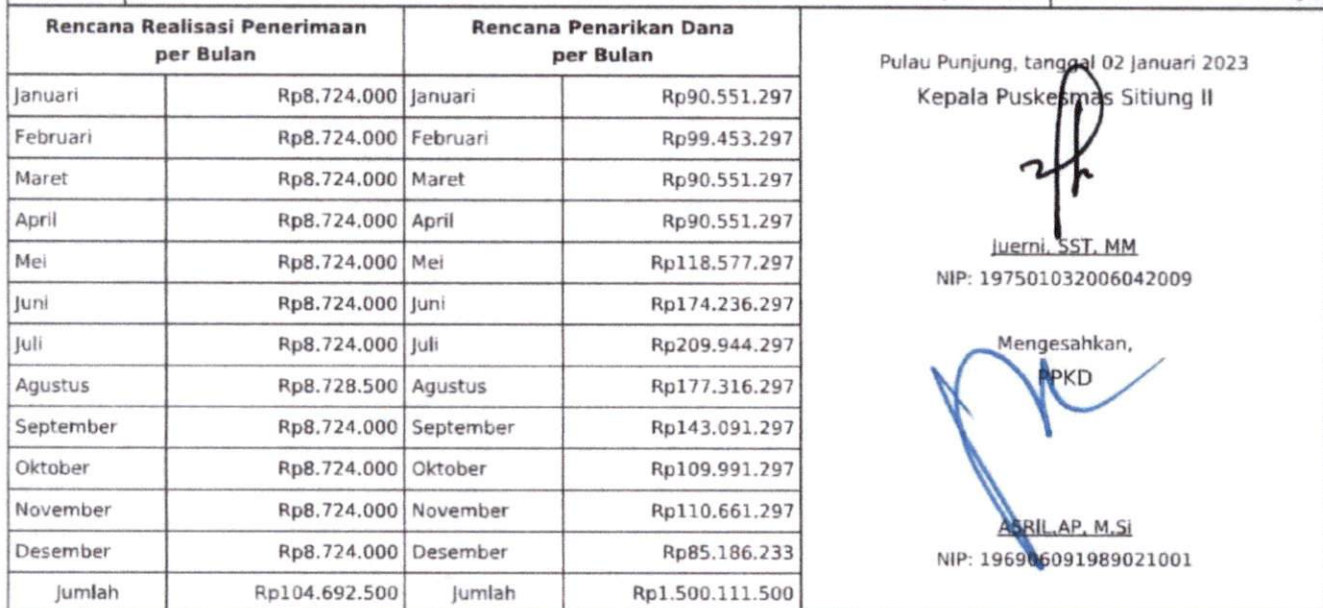 Rencana Realisasi Penerimaan
per Bulan
Rencana Penarikan Dana
per Bulan
Januari Rp8.724.000 Januari Rp90.551.297
Februari Rp8.724.000 Februari Rp99.453.297
Maret Rp8.724.000 Maret Rp90.551.297
April Rp8.724.000 April Rp90.551.297
Mei Rp8.724.000 Mei Rp118.577.297
Juni Rp8.724.000 Juni Rp174.236.297
Juli Rp8.724.000 Juli Rp209.944.297
Agustus Rp8.728.500 Agustus Rp177.316.297
September Rp8.724.000 September Rp143.091.297
Oktober Rp8.724.000 Oktober Rp109.991.297
November Rp8.724.000 November Rp110.661.297
Desember Rp8.724.000 Desember Rp85.186.233
Jumlah Rp104.692.500 Jumlah Rp1.500.111.500
Pulau Punjung, tanggal 02 Januari 2023
Kepala Puskesmas Sitiung II
Juerni, SST, MM
NIP: 197501032006042009
Mengesahkan,
PPKD
ASRIL,AP, M.Si
NIP: 196906091989021001